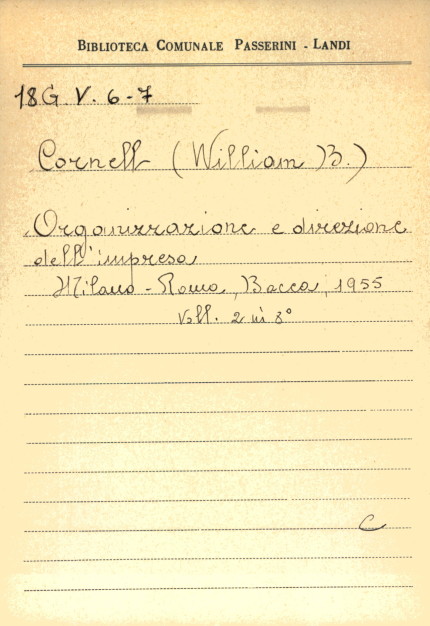 BIBLIOTECA COMUNALE PASSERINI - LANDI
18G. V. 6-7
Cornell (William B.)
Organizzazione e direzione
dell'impresa
Milano - Roma, Bocca, 1955
Voll. 2 in 8°
C